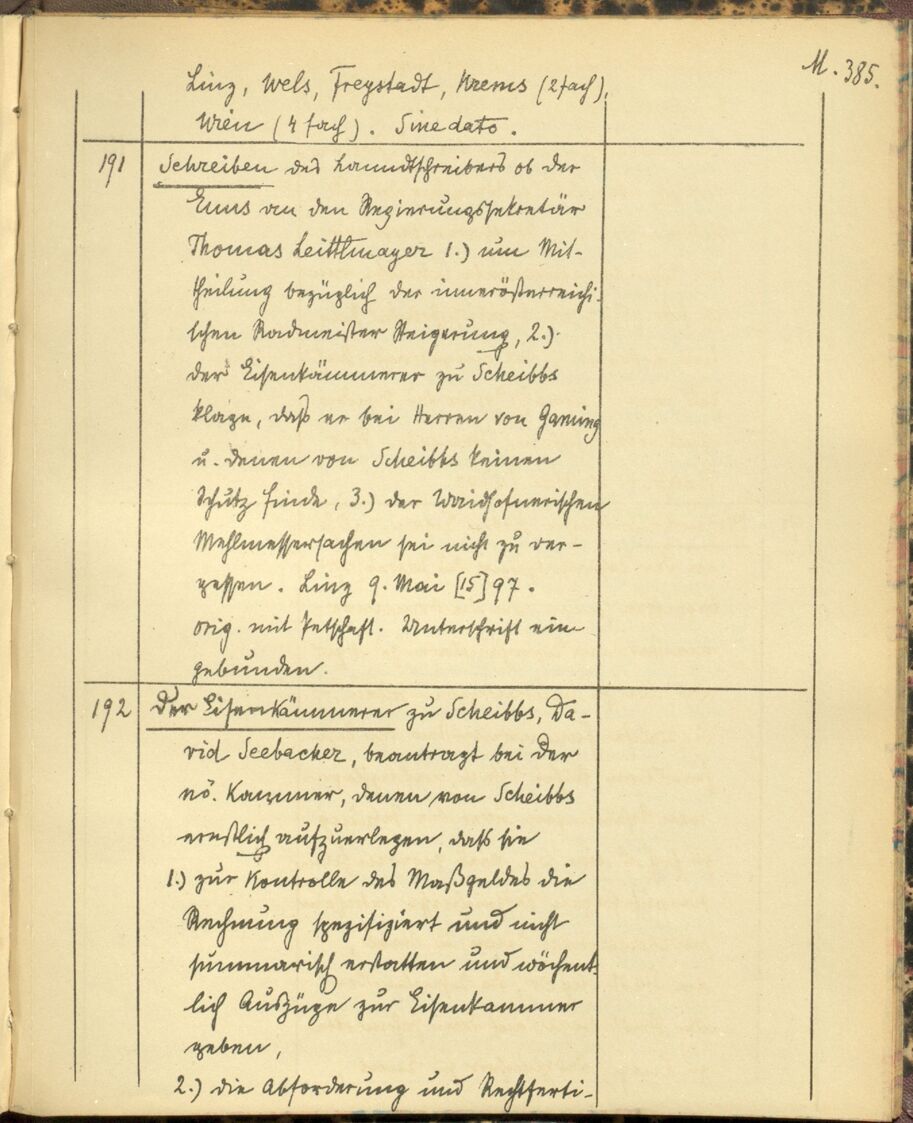 M. 385.
Linz, Wels, Freystadt, Krems (2fach),
Wien (4fach). Sine dato.
191 Schreiben des Lanndtschreibers ob der
Enns an den Regierungssekretär
Thomas Leittlmayer 1.) um Mit-
theilung bezüglich der innerösterreichi-
schen Radmeister Steigerung, 2.)
der Eisenkämmerer zu Scheibbs
klage, daß er bei Herren von Gaming
u. denen von Scheibbs keinen
Schutz finde, 3.) der Waidhofnerischen
Mehlmessersachen sei nicht zu ver-
gessen. Linz 9. Mai [15]97.
orig. mit Petschaft. Unterschrift ein-
gebunden.
192 Der Eisenkämmerer zu Scheibbs, Da-
vid Seebacher, beantragt bei der
nö. Kammer, denen von Scheibbs
ernstlich aufzuerlegen, dass sie
1.) zur Kontrolle des Maßgeldes die
Rechnung spezifiziert und nicht
summarisch erstatten und wöchent-
lich Auszüge zur Eisenkammer
geben,
2.) die Abforderung und Rechtferti-